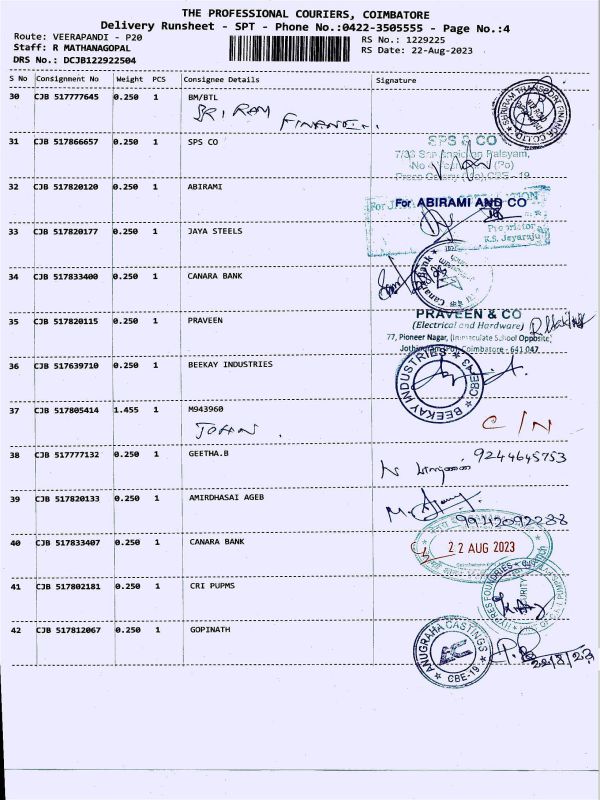 THE PROFESSIONAL COURIERS, COIMBATORE
Delivery Runsheet - SPT - Phone No.:0422-3505555 - Page No.:4
Route: VEERAPANDI - P20
RS No.: 1229225
Staff: R MATHANAGOPAL
RS Date: 22-Aug-2023
DRS No.: DCJB122922504
S No Consignment No Weight PCS Consignee Details Signature
30 CJB 517777645 0.250 1 BM/BTL
SRI RAM FINANCE.
31 CJB 517866657 0.250 1 SPS CO
SPS & CO
32 CJB 517820120 0.250 1 ABIRAMI
For ABIRAMI AND CO
33 CJB 517820177 0.250 1 JAYA STEELS
Proprietor
K.S. Jeyaraju
34 CJB 517833400 0.250 1 CANARA BANK
Canara Bank
35 CJB 517820115 0.250 1 PRAVEEN
PRAVEEN & CO
(Electrical and Hardware)
77, Pioneer Nagar, (Immaculate School Opposite)
Coimbatore - 641 047
36 CJB 517639710 0.250 1 BEEKAY INDUSTRIES
BEEKAY INDUSTRIES
37 CJB 517805414 1.455 1 M943960
JOHN.
C/N
38 CJB 517777132 0.250 1 GEETHA.B
9244645753
39 CJB 517820133 0.250 1 AMIRDHASAI AGEB
9942092288
40 CJB 517833407 0.250 1 CANARA BANK
22 AUG 2023
41 CJB 517802181 0.250 1 CRI PUPMS
42 CJB 517812067 0.250 1 GOPINATH
ANUGRAHA CASTINGS
CBE-19
22/8/23